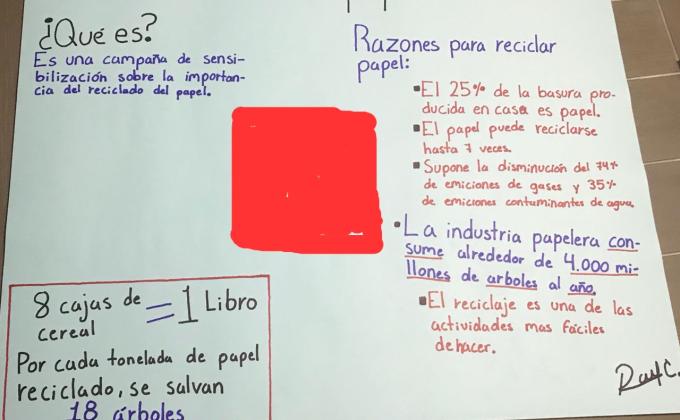 ¿Qué es?
Es una campaña de sensi-
bilización sobre la importan-
cia del reciclado del papel.
Razones para reciclar
papel:
El 25% de la basura pro-
ducida en casa es papel.
El papel puede reciclarse
hasta 7 veces.
Supone la disminución del 74%
de emiciones de gases y 35%
de emiciones contaminantes de agua.
La industria papelera con-
sume alrededor de 4.000 mi-
llones de arboles al año.
El reciclaje es una de las
actividades mas fáciles
de hacer.
8 cajas de = 1 Libro
cereal
Por cada tonelada de papel
reciclado, se salvan
18 árboles